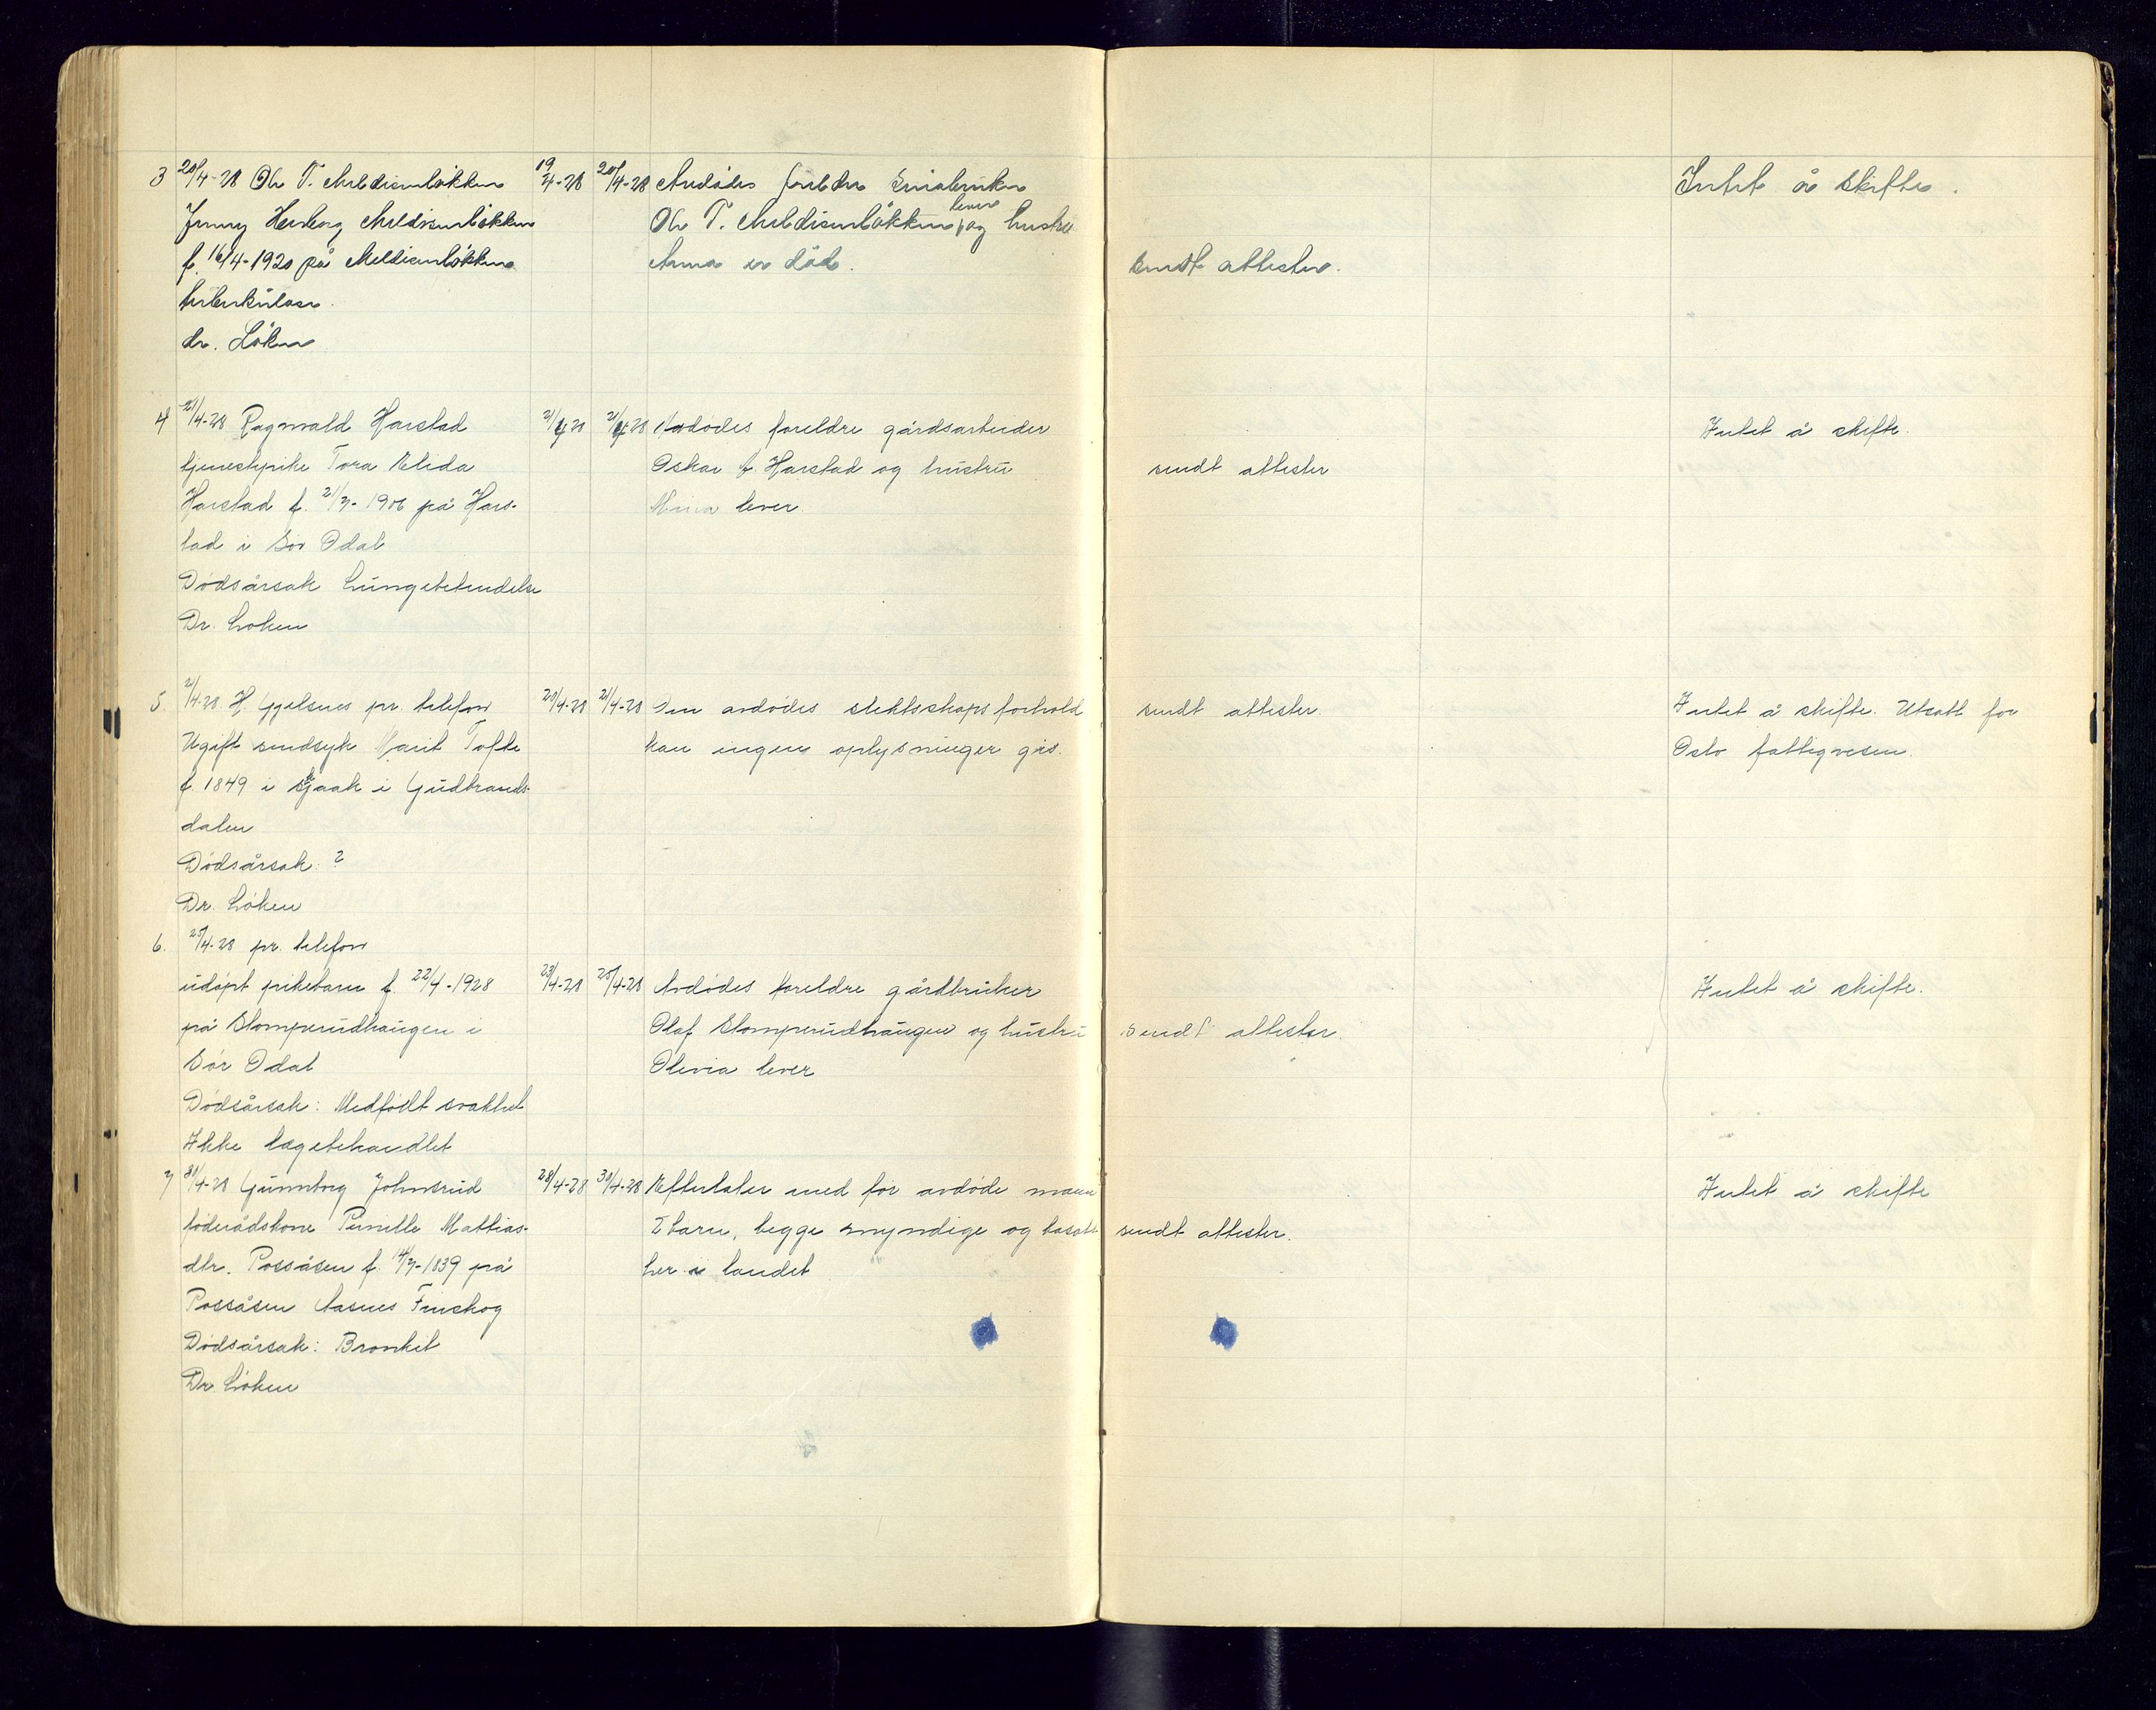 3 20/4-28 Ole T. Meldisenløkken 19/4-28 20/4-28 Avdødes foreldre småbruker Intet å skifte.
Jenny Herborg Meldisenløkken Ole T. Meldisenløkken lever og hustru
f. 16/4-1920 på Meldisenløkken Anna er død. sendt attester.
tuberkulose.
dr. Løken
4 21/4-28 Ragnvald Harstad 21/4 28 21/4 28 Avdødes foreldre gårdsarbeider Intet å skifte.
tjenestepike Tora Elida Oskar Harstad og hustru sendt attester
Harstad f. 21/7-1906 på Hars- Mina lever
tad i Sør Odal
Dødsårsak Lungebetendelse
Dr. Løken
5. 21/4-28. H. Gjelsnes pr. telefon 20/4-28 21/4-28 Om avdødes slektskapsforhold sendt attester. Intet å skifte. Utsatt for
Ugift sindsyk Marit Tofte kan ingen oplysninger gis. Oslo fattigvesen.
f. 1849 i Skjaak i Gudbrands-
dalen
Dødsårsak: ?
Dr. Løken
6. 25/4-28 pr. telefon
udøpt pikebarn f. 22/4-1928 23/4-28 25/4-28 Avdødes foreldre gårdbruker Intet å skifte.
på Stomperudhaugen i Olaf Stomperudhaugen og hustru sendt attester.
Sør Odal Olivia lever
Dødsårsak: Medfødt svakhet
Ikke lægebehandlet
7 30/4-28 Gunnborg Johnsrud 28/4-28 30/4-28 Efterlater med før avdøde mann Intet å skifte
føderådskone Pernille Mattias- 2 barn, begge myndige og bosatt sendt attester.
dtr. Possåsen f. 14/7-1839 på her i landet
Possåsen Aasnes Finskog
Dødsårsak: Bronkit
Dr. Løken